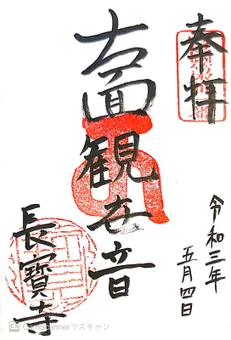 奉拝
令和三年
五月四日
十一面観世音
長寶寺
CamScannerでスキャン